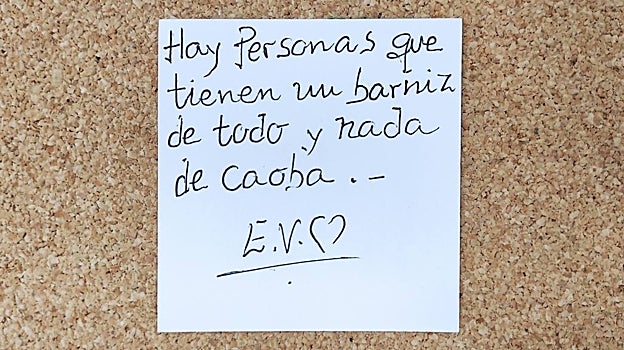 Hay Personas que
tienen un barniz
de todo y nada
de caoba . -
E.V.